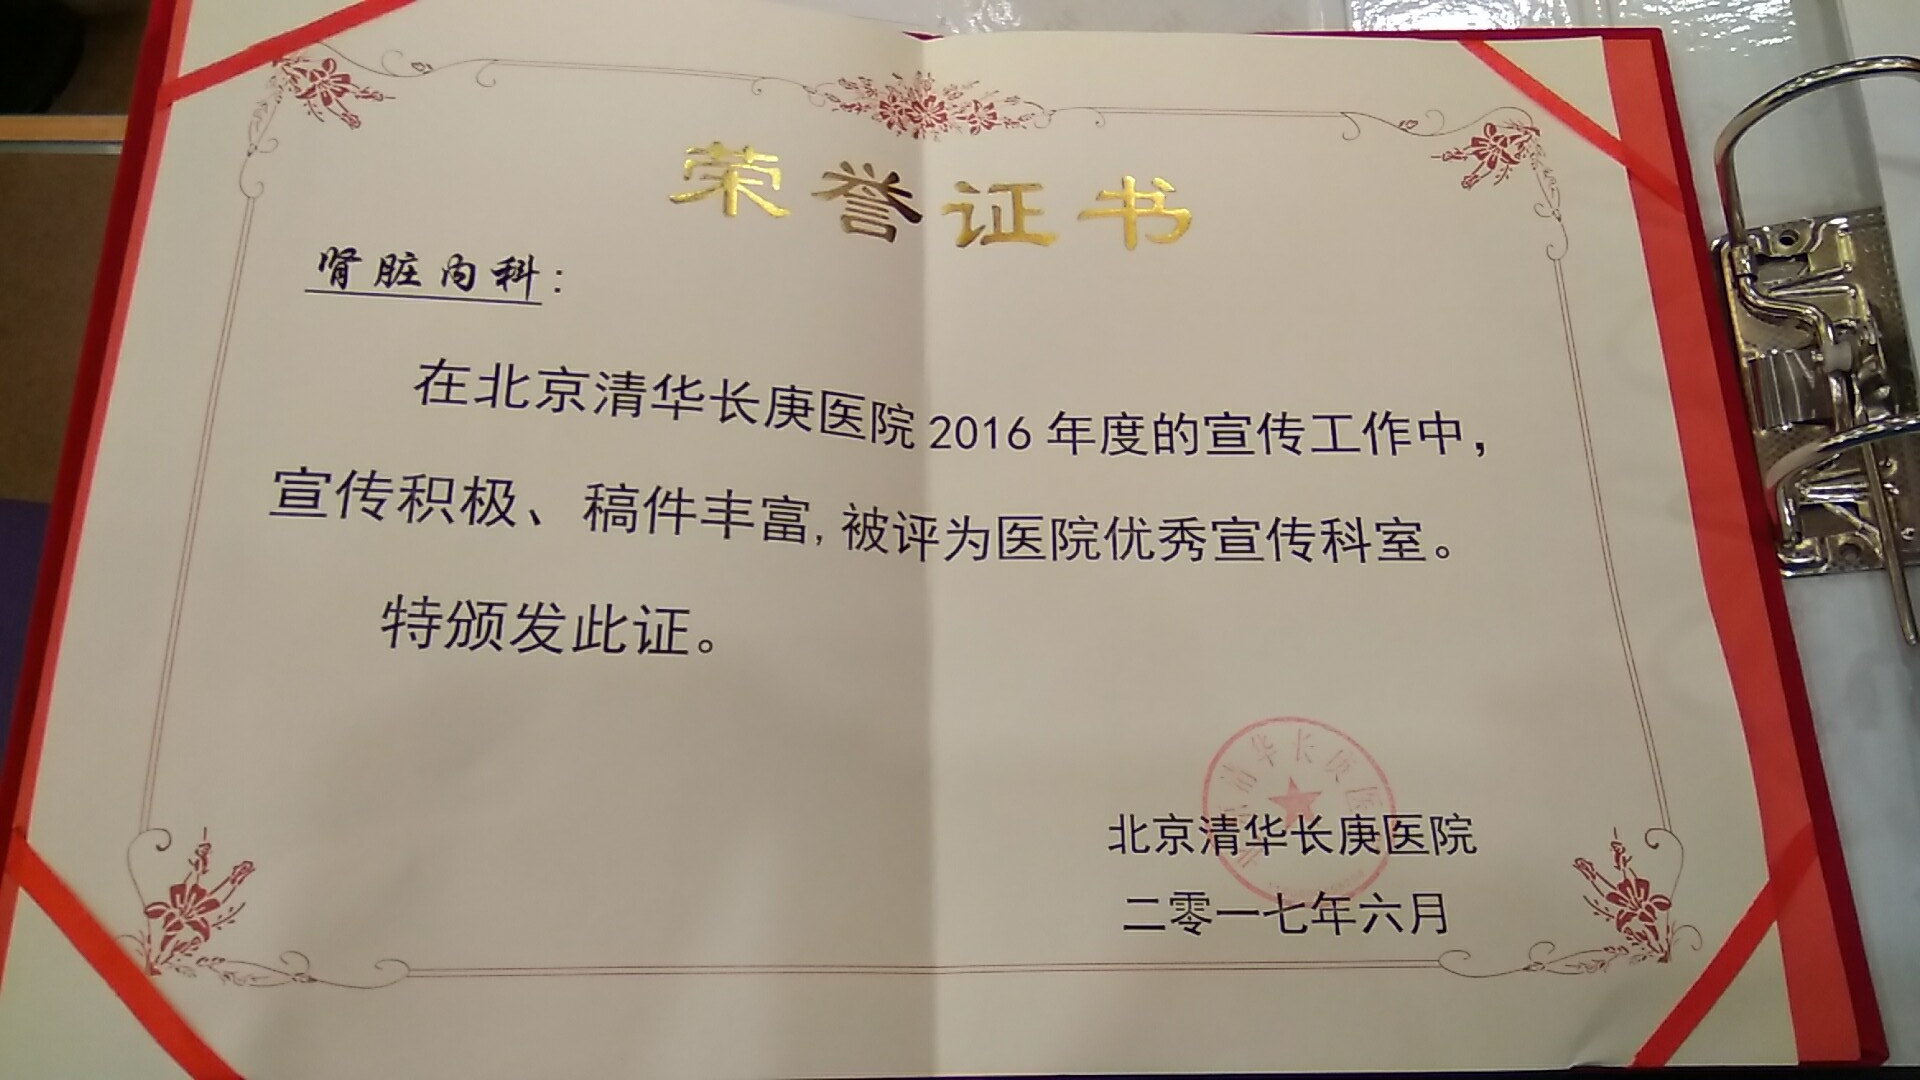 荣誉证书
肾脏内科：
在北京清华长庚医院2016年度的宣传工作中，
宣传积极、稿件丰富,被评为医院优秀宣传科室。
特颁发此证。
清华长庚医
北京清华长庚医院
二零一七年六月